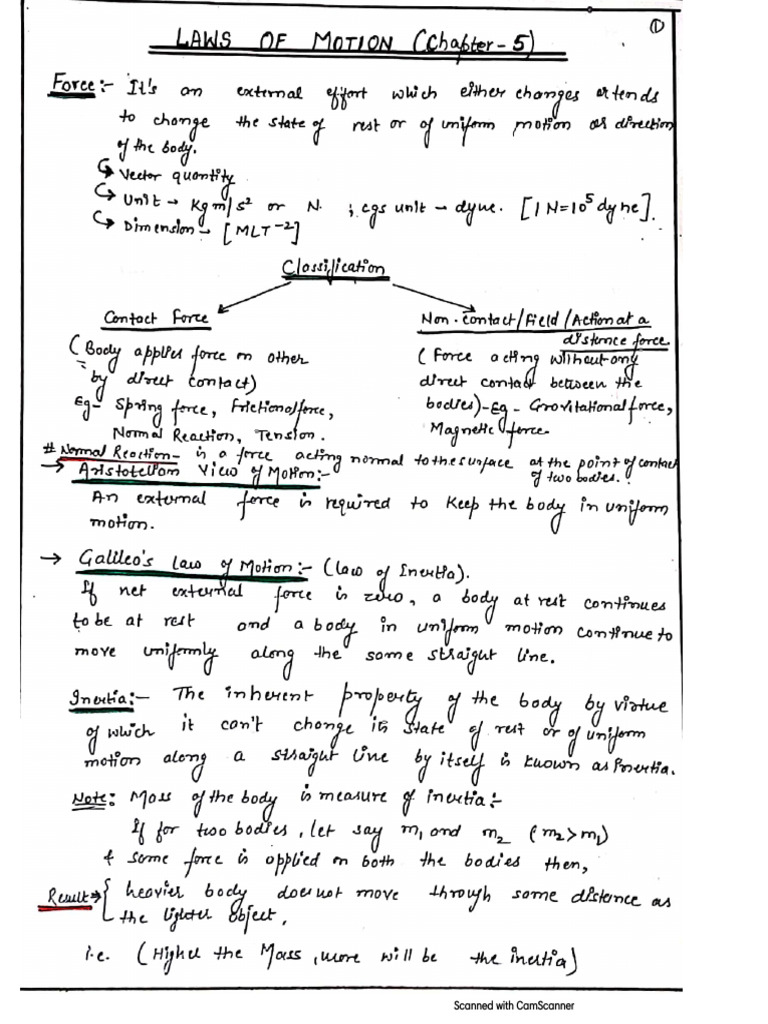 ①
LAWS OF MOTION (Chapter-5)
Force:- It's an external effort which either changes or tends
to change the state of rest or of uniform motion or direction
of the body.
↳ Vector quantity
↳ Unit → Kg m/s² or N. ; cgs unit - dyne. [1 N=10⁵ dyne].
↳ Dimension - [MLT⁻²]
Classification
Contact Force
(Body applies force on other
by direct contact)
Eg- Spring force, Frictional force,
Normal Reaction, Tension.
Non-contact/Field/Action at a
distance force.
(Force acting without any
direct contact between the
bodies)-Eg- Gravitational force,
Magnetic force.
# Normal Reaction- is a force acting normal to the surface at the point of contact
of two bodies.
→ Aristotelian View of Motion:-
An external force is required to keep the body in uniform
motion.
→ Galileo's Law of Motion:- (law of Inertia).
If net external force is zero, a body at rest continues
to be at rest and a body in uniform motion continue to
move uniformly along the same straight line.
Inertia:- The inherent property of the body by virtue
of which it can't change its state of rest or of uniform
motion along a straight line by itself is known as Inertia.
Note: Mass of the body is measure of inertia:-
If for two bodies, let say m₁ and m₂ (m₂>m₁)
& same force is applied on both the bodies then,
Result→ { heavier body does not move through same distance as
the lighter object.
i.e. (Higher the Mass, more will be the inertia)
Scanned with CamScanner